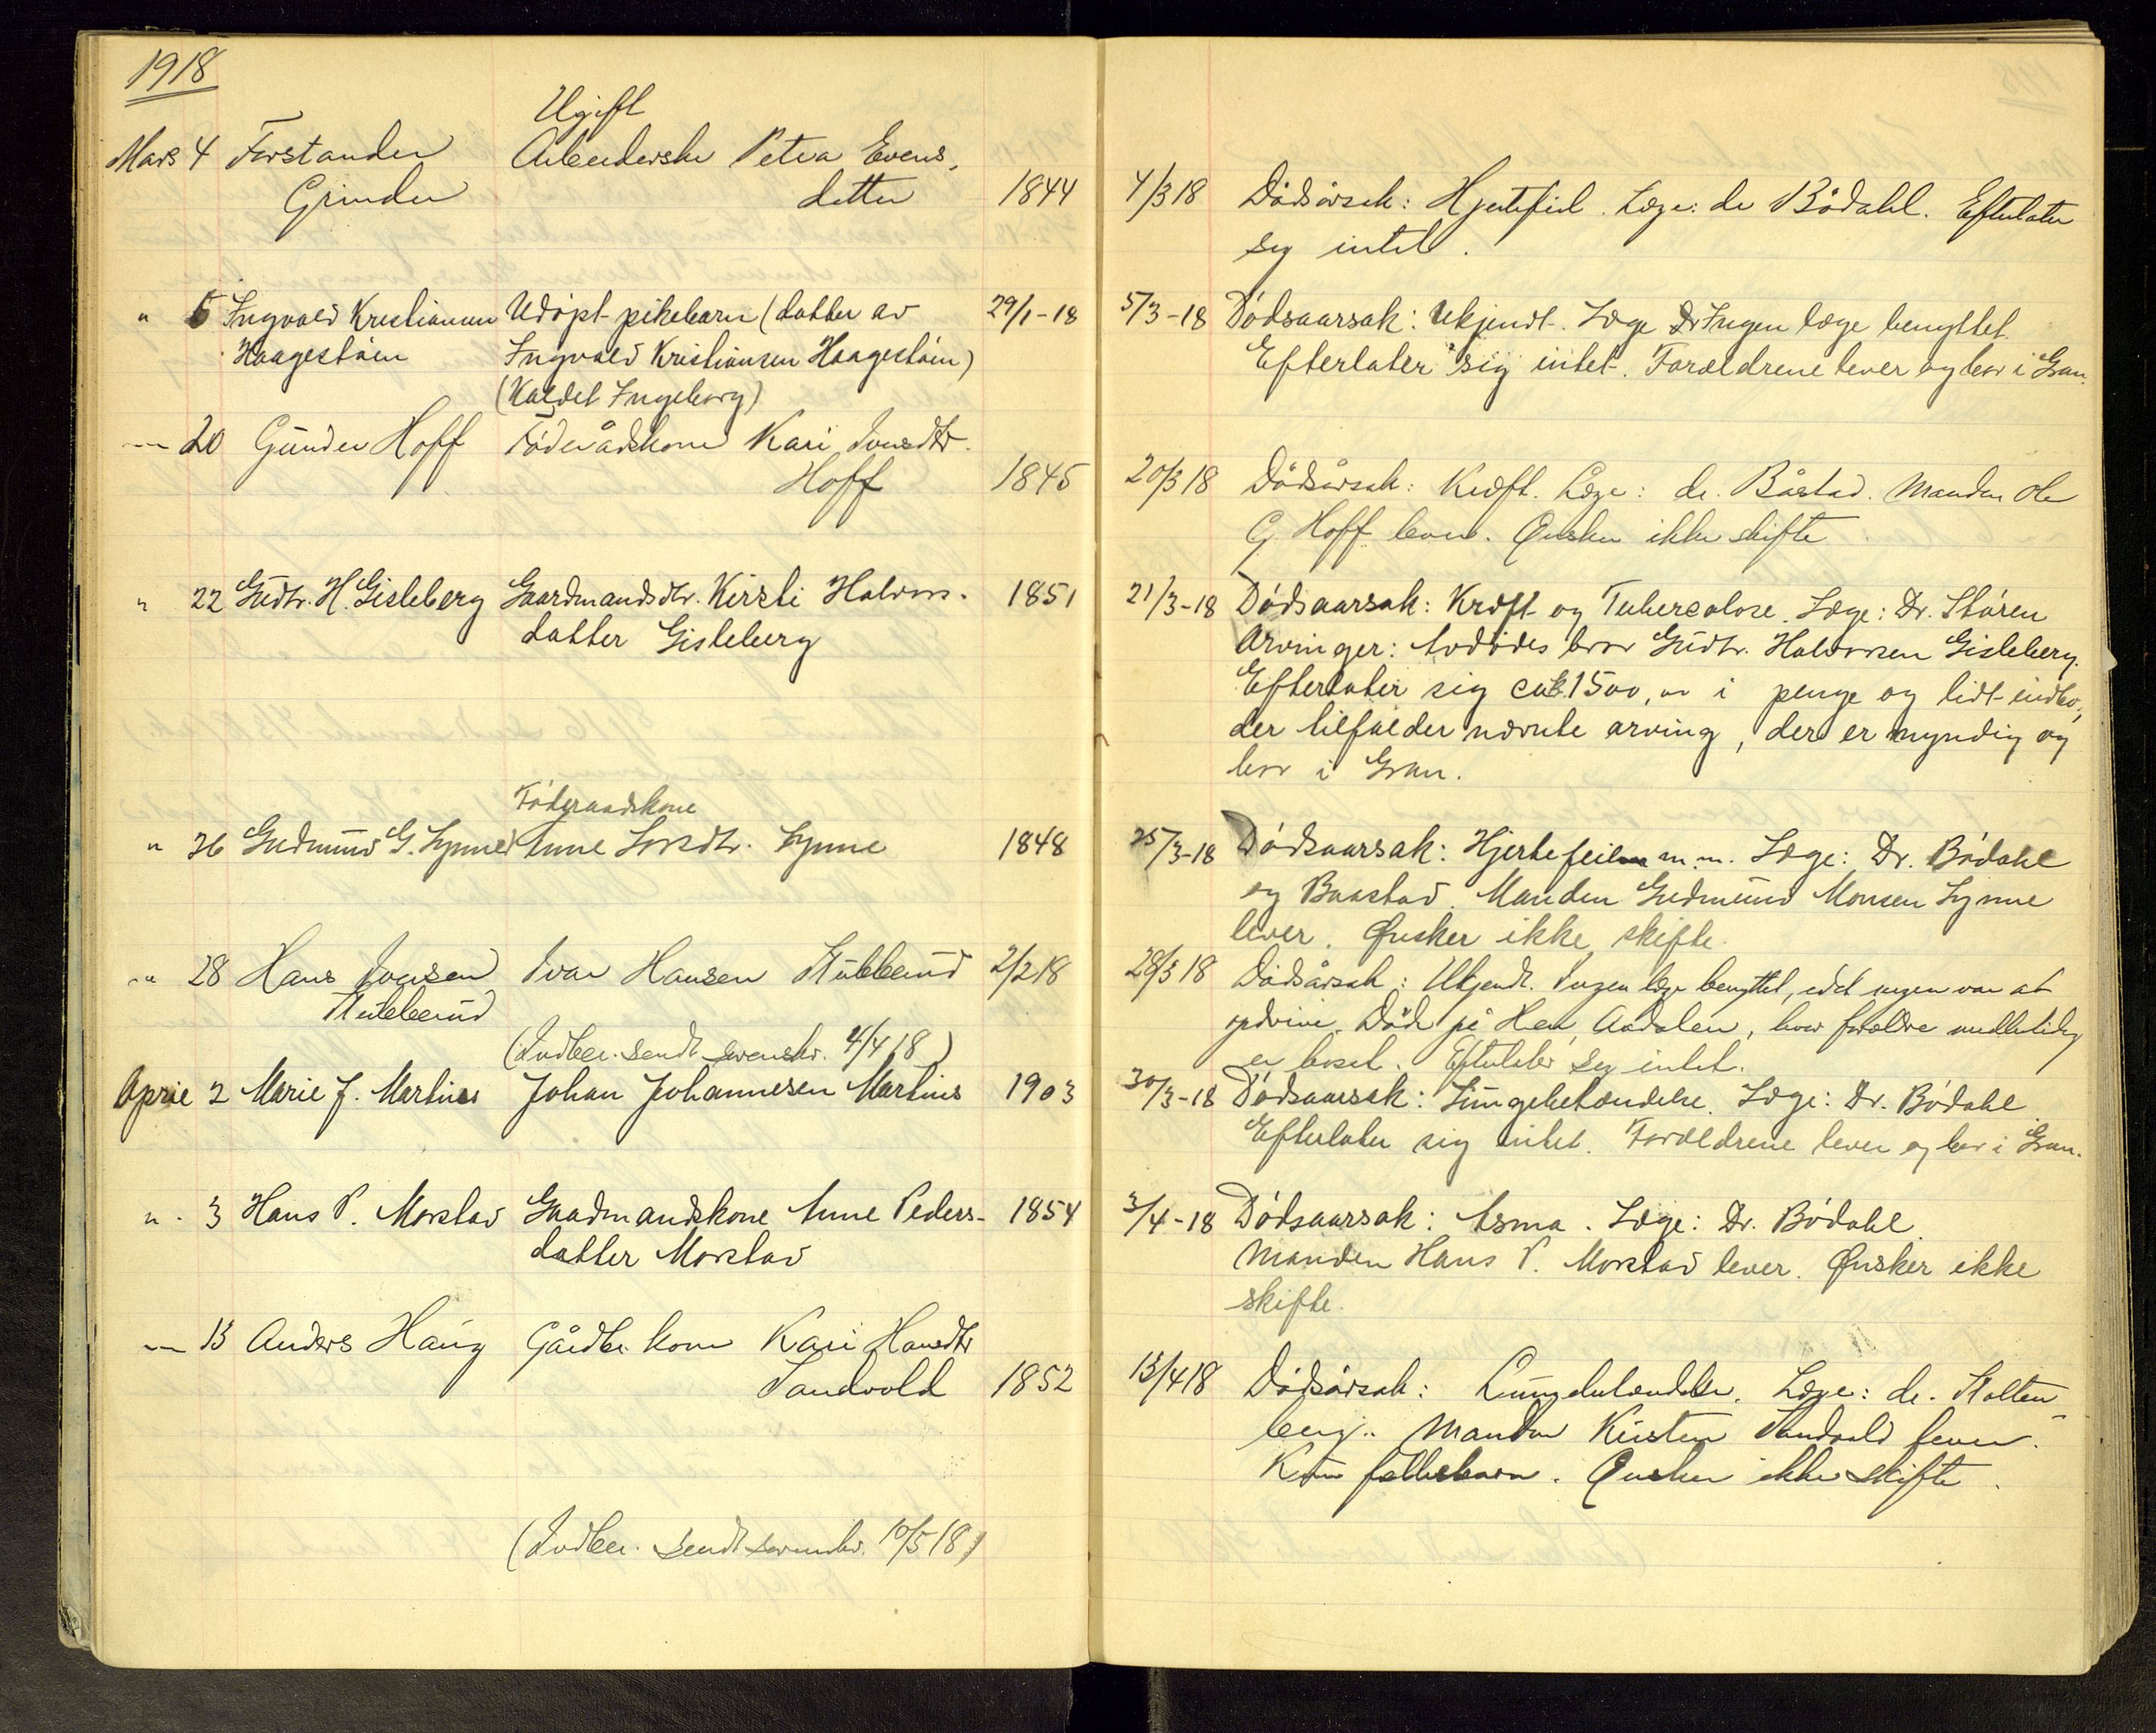 1918
Ugift
Mars 4 Forstander Arbeiderske Petra Evens-
Grinder datter 1844 4/3 18 Dødsårsak: Hjertefeil. Læge: dr Bødahl. Efterlater
sig intet.
" 5 Ingvald Kristiansen Udøpt pikebarn (datter av 29/1-18 5/3-18 Dødsaarsak: Ukjendt. Læge Dr Ingen læge benyttet.
Haagestøen Ingvald Kristiansen Haagestøen) Efterlater sig intet. Forældrene lever og bor i Gran.
(Kaldet Ingeborg)
— 20 Gunder Hoff Føderådskone Kari Iversdtr.
Hoff 1845 20/3 18 Dødsårsak: Kræft. Læge: dr. Båstad. Manden Ole
G. Hoff lever. Ønsker ikke skifte
" 22 Gudbr. H. Gisleberg Gaardmandsdtr. Kirsti Halvors- 1851 21/3-18 Dødsaarsak: Kræft og Tuberculose. Læge: Dr. Støren
datter Gisleberg Arvinger: Avdødes bror Gudbr. Halvorsen Gisleberg.
Efterlater sig ca k. 1500,00 i penge og lidt indbo,
der tilfalder nævnte arving, der er myndig og
bor i Gran.
Føderaadskone
" 26 Gudmund G. Lynne Anne Larsdtr. Lynne 1848 25/3-18 Dødsaarsak: Hjertefeil m.m. Læge: Dr. Bødahl
og Baastad. Manden Gudmund Monsen Lynne
lever. Ønsker ikke skifte.
" 28 Hans Iversen Ivar Hansen Stubberud 2/2 18 28/3 18 Dødsårsak: Ukjendt. Ingen læge benyttet, idet ingen var at
Stubberud opdrive. Død på Hen, Aadalen, hvor forældre midlertidig
(Indber. sendt sorenskr. 4/4 18) er bosat. Efterlater sig intet.
April 2 Marie J. Martins Johan Johannesen Martins 1903 30/3-18 Dødsaarsak: Lungebetændelse. Læge: Dr. Bødahl
Efterlater sig intet. Forældrene lever og bor i Gran.
" 3 Hans P. Morstad Gaardmandskone Anne Peders- 1854 3/4-18 Dødsaarsak: Asma. Læge: Dr. Bødahl.
datter Morstad Manden Hans P. Morstad lever. Ønsker ikke
skifte.
— 13 Anders Haug Gårdbr. kone Kari Hansdtr
Sandvold 1852 13/4 18 Dødsårsak: Lungebetændelse. Læge: dr. Stolten-
berg. Manden Kristen Sandvold lever.
Kun fællesbarn. Ønsker ikke skifte.
(Indber. sendt sorenskr. 10/5 18)